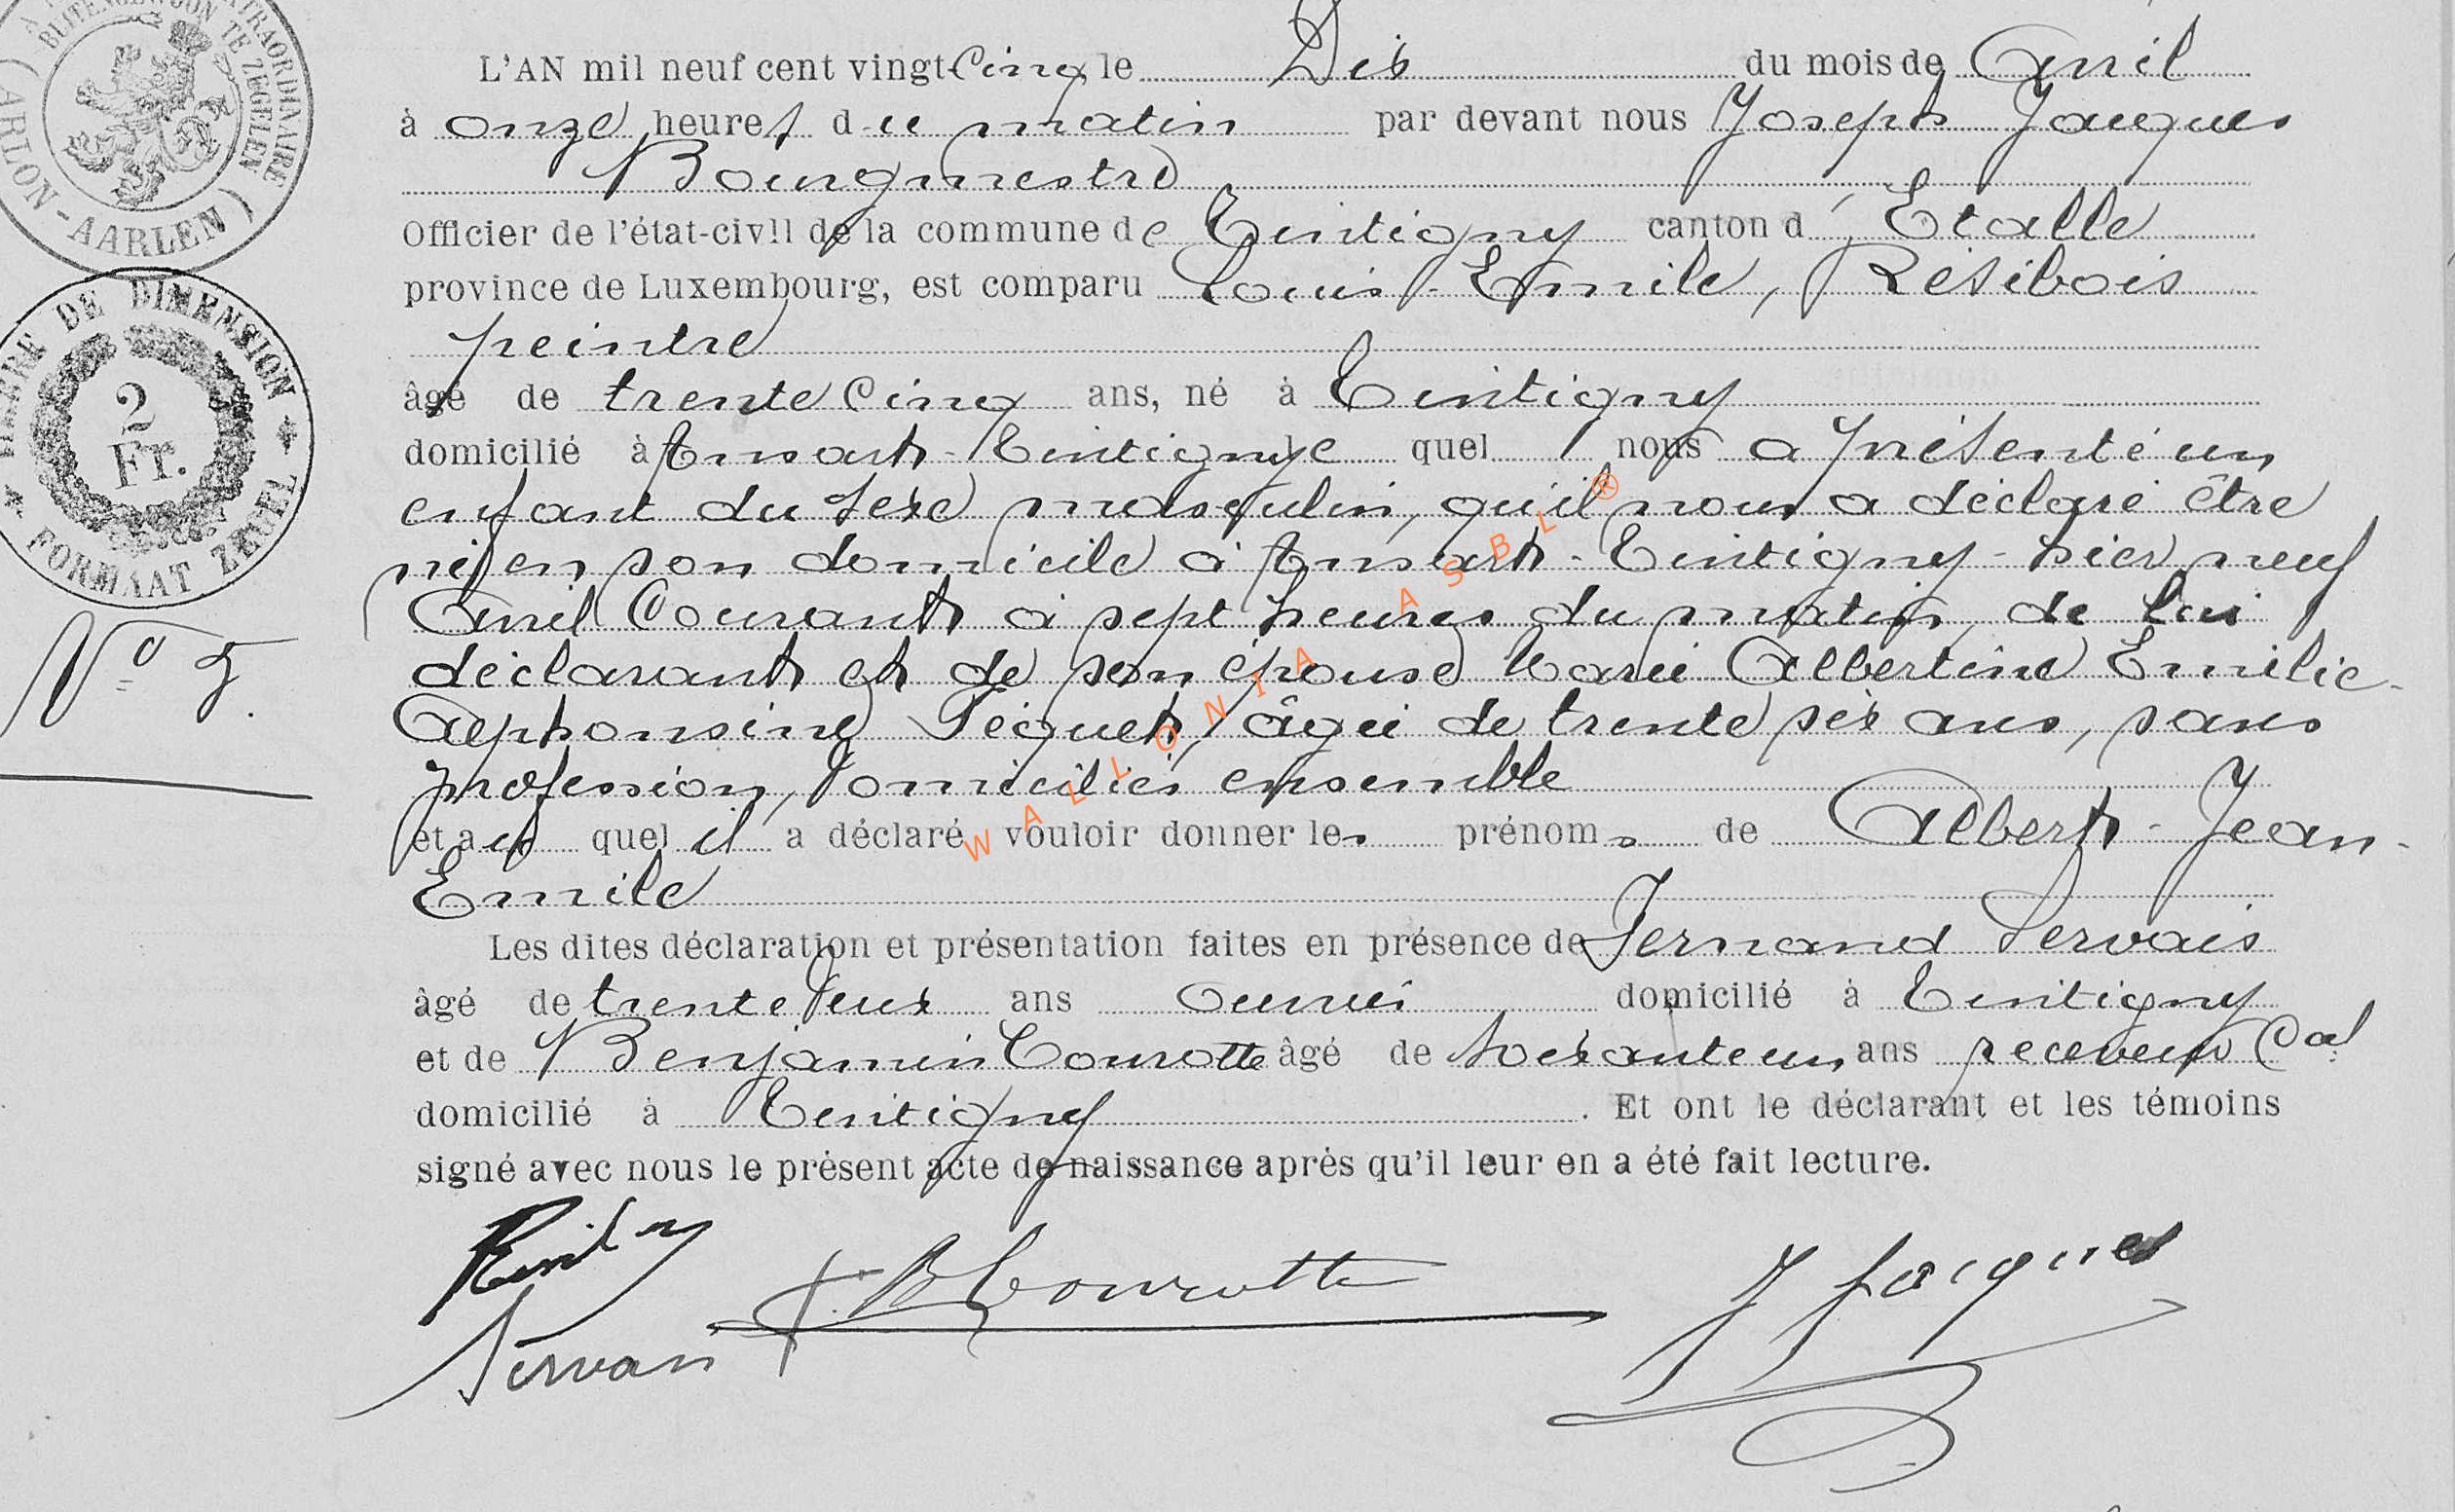 BUITENGEWOON TE ZEGELEN
EXTRAORDINAIRE
(ARLON-AARLEN)
L'AN mil neuf cent vingt-Cinq le Dix du mois de Avril
à onze heures du matin par devant nous Joseph Jacques
Bourgmestre
Officier de l'état-civil de la commune de Tintigny canton d'Etalle
province de Luxembourg, est comparu Louis-Emile, Résibois
peintre
âgé de trente Cinq ans, né à Tintigny
domicilié à Ansart-Tintigny le quel nous a présenté un
enfant du sexe masculin, qu'il nous a déclaré être
né en son domicile à Ansart-Tintigny-hier neuf
Avril Courant à sept heures du matin, de lui
déclarant et de son épouse Marie Albertine Emilie-
Alphonsine Péquet, âgée de trente six ans, sans
profession, Domiciliés ensemble
et au quel il a déclaré vouloir donner les prénoms de Albert-Jean-
Emile
Les dites déclaration et présentation faites en présence de Fernand Servais
âgé de trente Deux ans domicilié à Tintigny
et de Benjamin Courotte âgé de soixante un ans receveur Cal
domicilié à Tintigny. Et ont le déclarant et les témoins
signé avec nous le présent acte de naissance après qu'il leur en a été fait lecture.
DE DIMENSION
2
Fr.
FORMAAT ZEGEL
No 5.
WALLONIA ASBL®
Servais
B Courotte
J Jacques